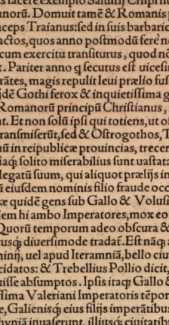 s facere exemplo Salsurij Chiprin
manorū. Domuit tamē & Romanis p
inceps Traianus: sed in suis barbarie
actos, quos anno postmodū fere n
cum exercitu transiturus, quod n
t. Pariter anno q secutus est uiceſi
rātes, magis repulit leui prælio fuſ
idē Gothi ferox & inquietiſſima g
Romanorū principū Christianus,
nt. Et non solū ipſi qui totiens, ut o
transmiſerūt, sed & Oſtrogothos, T
nū in reipublicæ prouincias, trecen
iaqʒ solito miserabilius sunt uastatæ
legatū ſuum, qui aliquot prælijs in
nū eiusdem nominis filio fraude occ
æ quidē gens sub Gallo & Volus
em hi ambo Imperatores, mox eo
Quorū temporum adeo obscura &
usqʒ diuersimode tradat. Est nāqʒ
minij, uel apud Iteramniā, bello ciu
cidatos: & Trebellius Pollio dicit,
isse absumptos. Ipsis itaqʒ Gallo &
ssima Valeriani Imperatoris tēpor
e, Galieniſqʒ eius filijs imperātibus
hyniā inuaserunt, illuſtres ciuitatibus